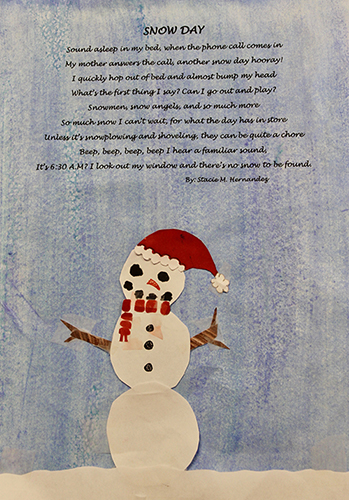 SNOW DAY
Sound asleep in my bed, when the phone call comes in
My mother answers the call, another snow day hooray!
I quickly hop out of bed and almost bump my head
What's the first thing I say? Can I go out and play?
Snowmen, snow angels, and so much more
So much snow I can't wait, for what the day has in store
Unless it's snowplowing and shoveling, they can be quite a chore
Beep, beep, beep, beep I hear a familiar sound,
It's 6:30 A.M? I look out my window and there's no snow to be found.
By: Stacie M. Hernandez